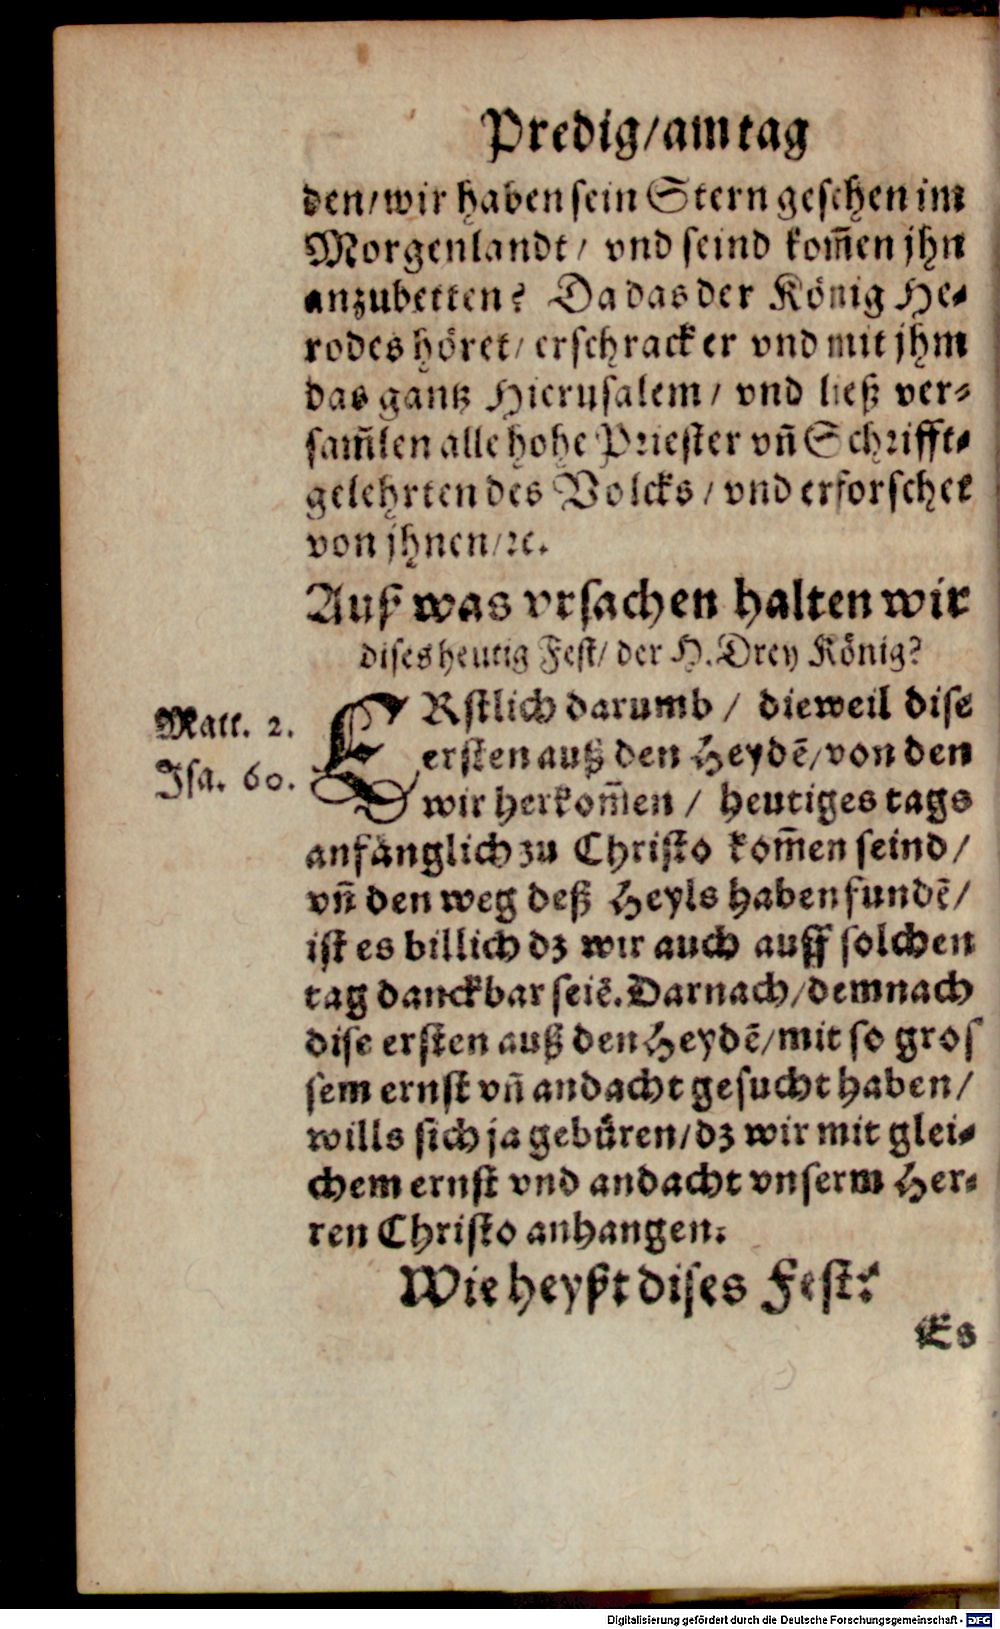 Predig/am tag
den/wir haben sein Stern gesehen im
Morgenlandt/ vnd seind kom̃en jhn
anzubetten? Da das der König He-
rodes höret/ erschrack er vnd mit jhm
das gantz Hierusalem/ vnd ließ ver-
sam̃len alle hohe Priester vn̄ Schrifft-
gelehrten des Volcks/ vnd erforschet
von jhnen/ꝛc.
Auß was vrsachen halten wir
dises heutig Fest/ der H. Drey König?
Matt. 2.
Isa. 60.
ERstlich darumb/ dieweil dise
ersten auß den Heydē/von den
wir herkom̃en/ heutiges tags
anfänglich zu Christo kom̃en seind/
vn̄ den weg deß Heyls haben fundē/
ist es billich dz wir auch auff solchen
tag danckbar seiē. Darnach/demnach
dise ersten auß den Heydē/mit so gros
sem ernst vn̄ andacht gesucht haben/
wills sich ja gebüren/dz wir mit glei-
chem ernst vnd andacht vnserm Her-
ren Christo anhangen.
Wie heyßt dises Fest?
Es
Digitalisierung gefördert durch die Deutsche Forschungsgemeinschaft - DFG